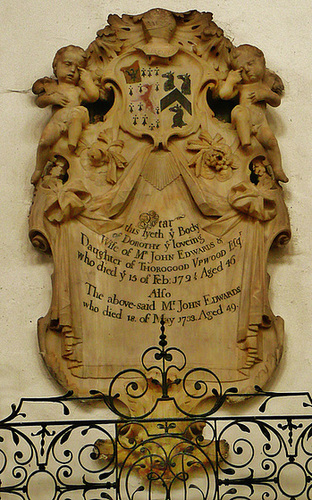 Near
this lyeth yͤ Body
of DOROTHY yͤ loveing
Wife of Mͬ JOHN EDWARDS &
Daughter of THOROGOOD VPWOOD Esqͬ
who died yͤ 15 of Feb: 172 Aged 46
Also
The above said Mͬ JOHN EDWARDS
who died 18 of May Aged 49.